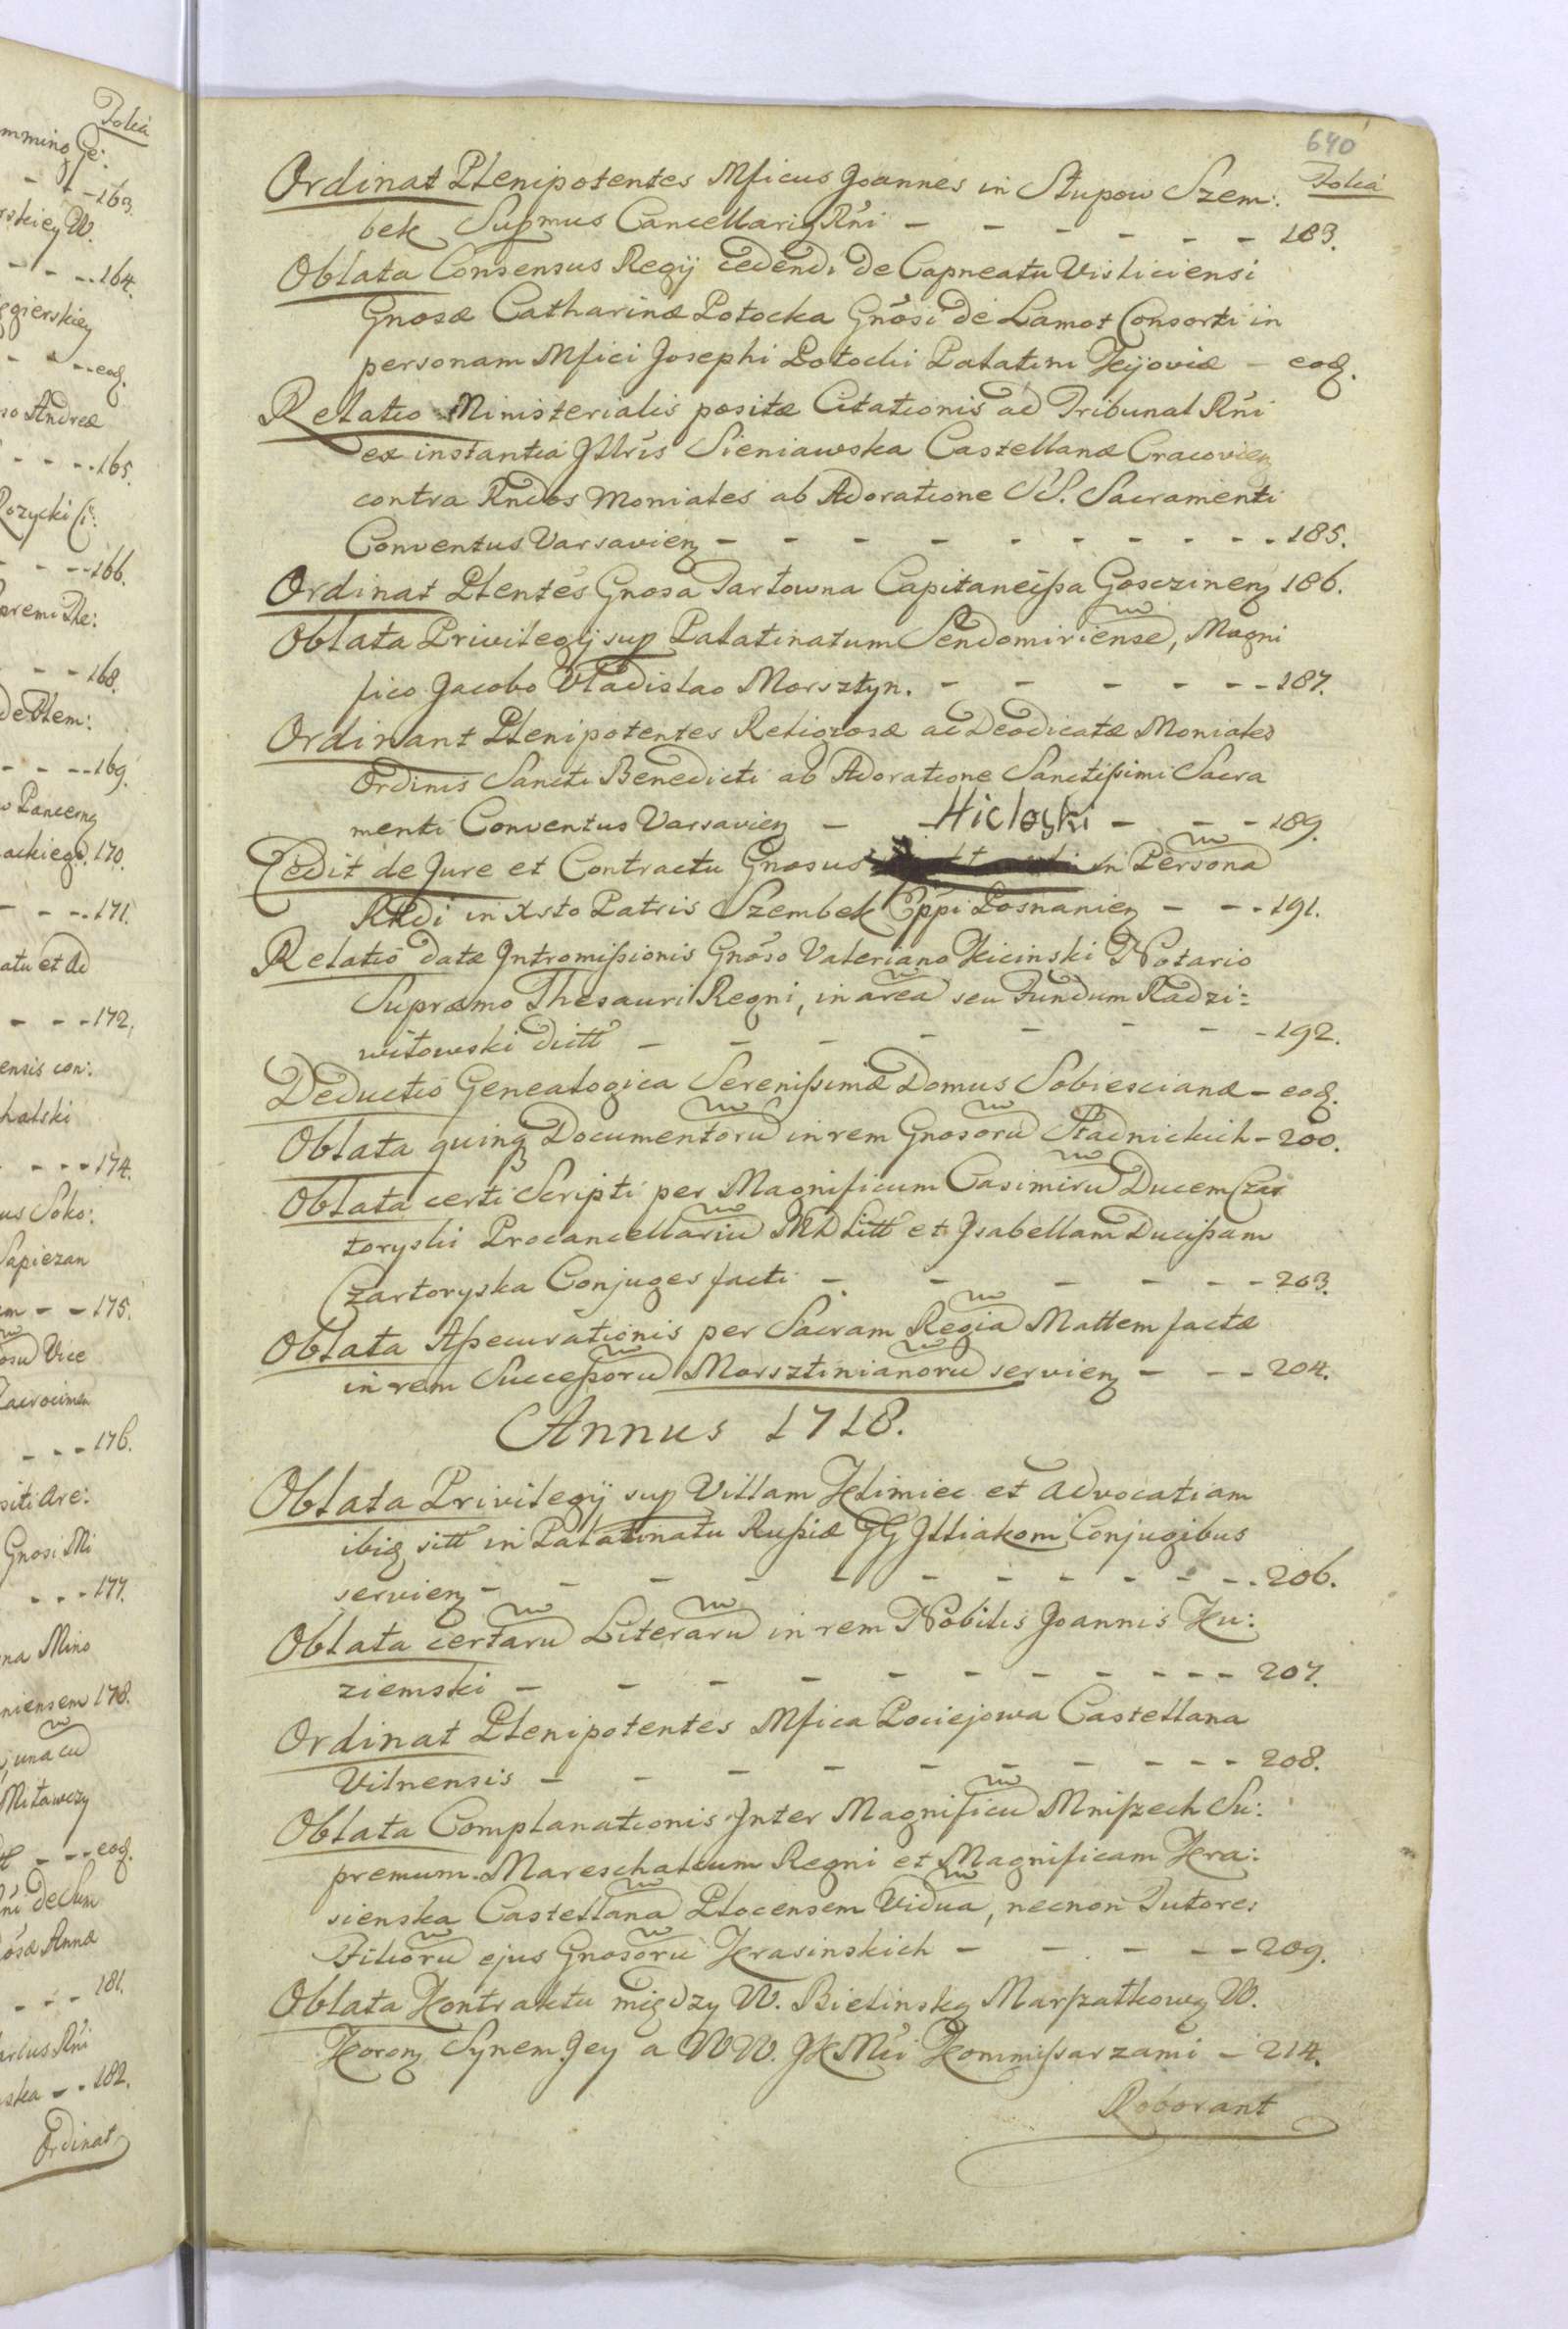 640
Folia
Ordinat Plenipotentes Mficus Joannes in Słupow Szem:
bek Supmus Cancellariq Rni - - - - - - 183.
Oblata Consensus Regij cedendi de Capneatu Visliciensi
Gnosæ Catharinæ Potocka Gnosi de Lamot Consorti in
personam Mfici Josephi Potocki Palatini Kijoviæ - eoq.
Relatio Ministerialis positæ Citationis ad Tribunal Rni
ex instantia Jllris Sieniawska Castellanæ Cracovienq
contra Rndos Moniales ab Adoratione SS. Sacramenti
Conventus Varsavienq - - - - - - - - - 185.
Ordinat Plentes Gnosa Tarłowna Capitaneißa Goszczinenq 186.
Oblata Privilegij sup Palatinatum Sendomiriense, Magni
fico Jacobo Vladislao Morsztyn. - - - - - - 187.
Ordinant Plenipotentes Religiosæ ac Deodicatæ Moniales
Ordinis Sancti Benedicti ab Adoratione Sanctißimi Sacra
menti Conventus Varsavienq - - - - - 189.
Hicloski
Cedit de Jure et Contractu Gnosus in Persona
RRdi in Xsto Patris Szembek Eppi Posnanienq - - - 191.
Relatio datæ Jntromißionis Gnoso Valeriano Kicinski Notario
Supræmo Thesauri Regni, in area seu Fundum Radzi=
wiłowski dictt - - - - - - - - 192.
Deductio Genealogica Serenißimæ Domus Sobiescianæ - eoq.
Oblata quinq Documentoru in rem Gnosoru Stadnickich - 200.
Oblata certi Scripti per Magnificum Casimiru Ducem Czar
toryski Procancellariu MD Litt et Jsabellam Ducißam
Czartoryska Conjuges facti - - - - - - 203.
Oblata Aßecurationis per Sacram Regia Mattem factæ
in rem Succeßoru Morsztinianoru servienq - - - 204.
Annus 1718.
Oblata Privilegij sup Villam Klimiec et Advocatiam
ibiq sitt in Palatinatu Rußiæ GG Jlliakom Conjugibus
servienq - - - - - - - - - - - 206.
Oblata certaru Literaru in rem Nobilis Joannis Ku:
ziemski - - - - - - - - - - 207.
Ordinat Plenipotentes Mfica Pociejowa Castellana
Vilnensis - - - - - - - - - - 208.
Oblata Complanationis Jnter Magnificu Mniszech Su:
premum Mareschalcum Regni et Magnificam Kra:
sienska Castellana Plocensem Vidua, necnon Tutores
Filioru ejus Gnosoru Krasinskich - - - - - 209.
Oblata Kontraktu między W. Bielinską Marszałkową W.
Koronq Synem Jey a WW. JKMci Kommißarzami - 214.
Roborant